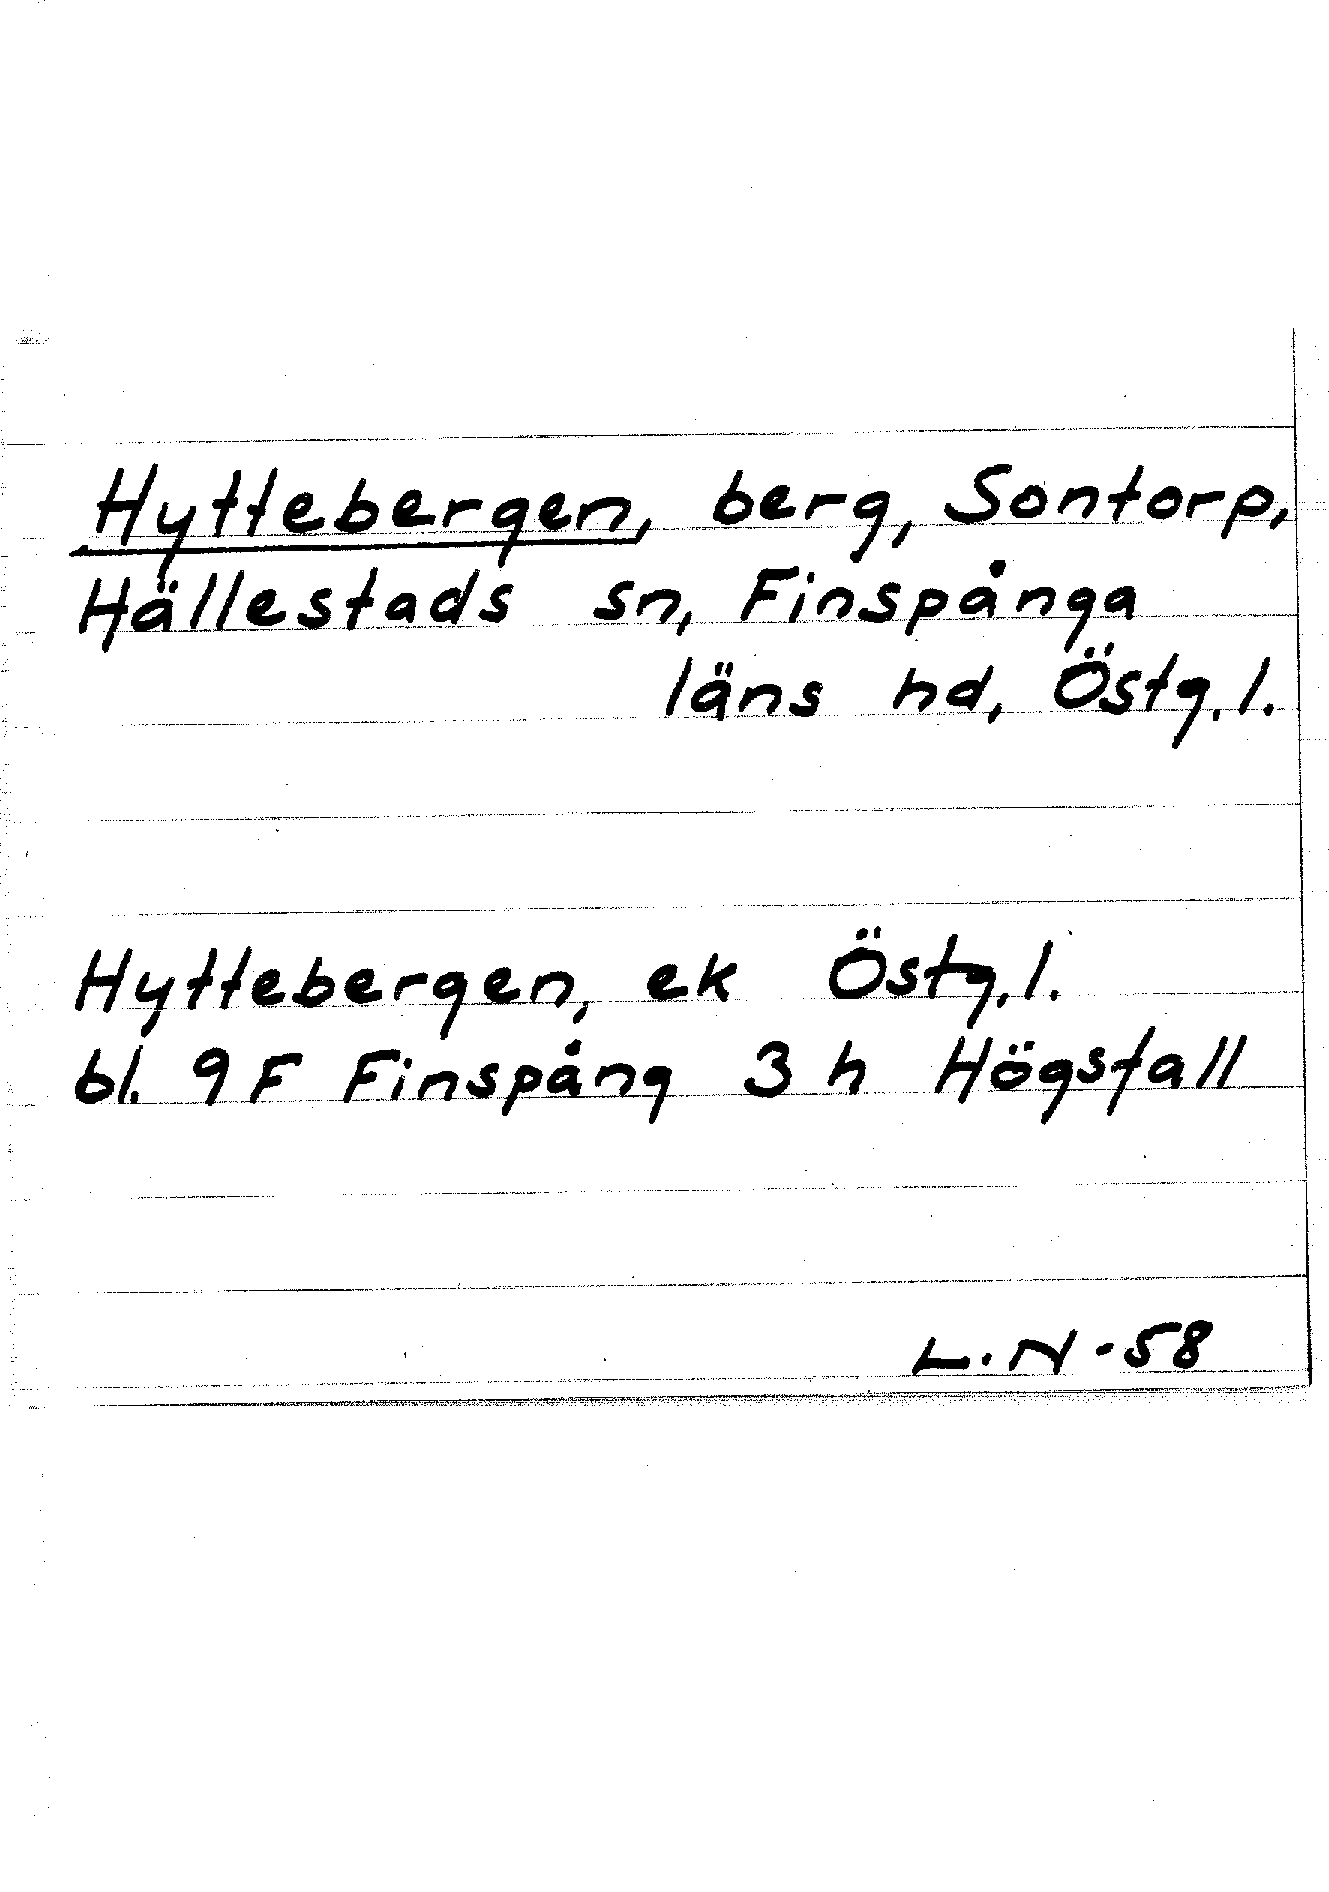 Hyttebergen, berg, Sontorp,
Hällestads sn, Finspånga
läns hd, Östg.l.
Hyttebergen, ek Östg.l.
bl. 9 F Finspång 3 h Högsfall
L.N -58